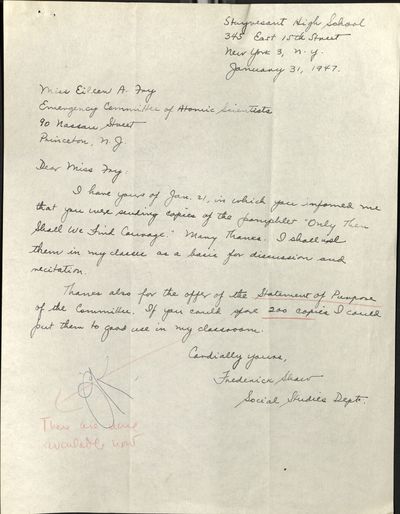 Stuyvesant High School
345 East 15th Street
New York 3, N.Y.
January 31, 1947.
Miss Eileen A. Fry
Emergency Committee of Atomic Scientists
90 Nassau Street
Princeton, N.J.
Dear Miss Fry:
I have yours of Jan. 21, in which you informed me
that you were sending copies of the pamphlet "Only Then
Shall We Find Courage." Many Thanks. I shall use
them in my classes as a basis for discussion and
recitation.
Thanks also for the offer of the Statement of Purpose
of the Committee. If you could spare 200 copies I could
put them to good use in my classroom.
Cordially yours,
Frederick Shaw
Social Studies Dept.
There are
available now